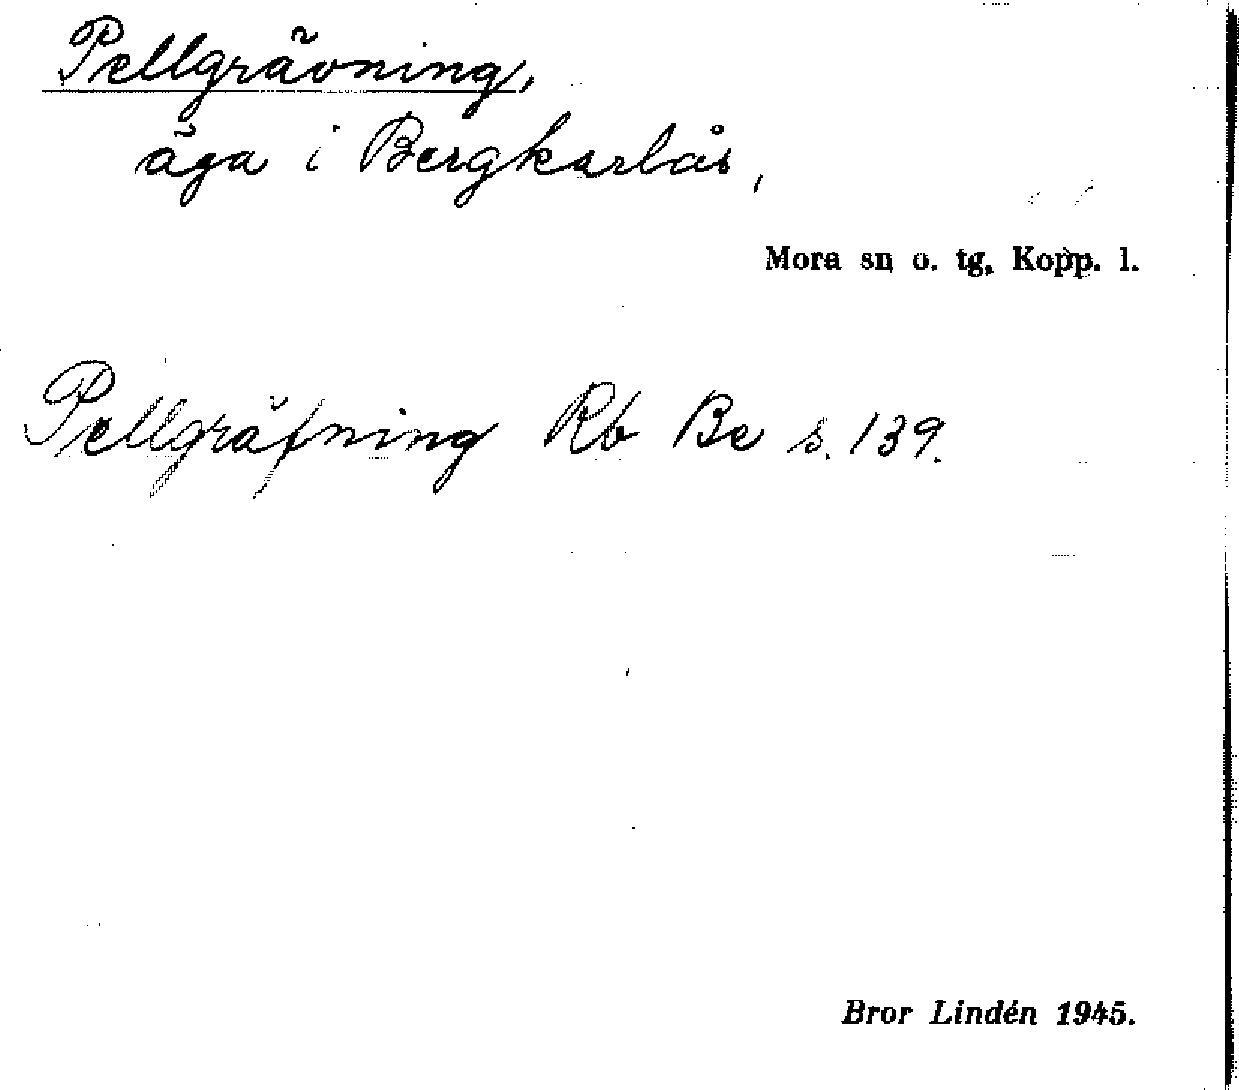 Pellgrävning,
äga i Bergkarlås,
Mora sn o. tg, Kopp. l.
Pellgräfning Rb Be s. 139.
Bror Lindén 1945.